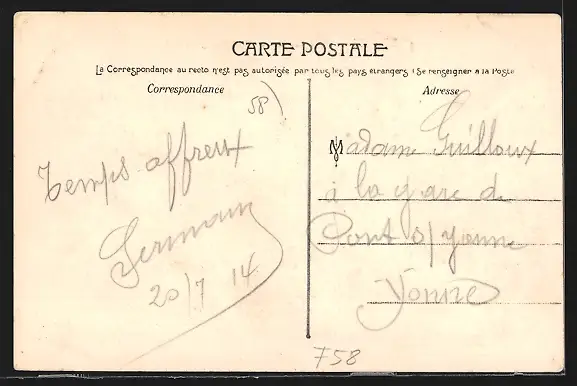 CARTE POSTALE
La Correspondance au recto n'est pas autorisée par tous les pays étrangers (Se renseigner à la Poste
Correspondance
58)
Temps affreux
Germain
20/7 14
Adresse
Madame Guilloux
à la gare de
Pont s/ Yonne
Yonne
758